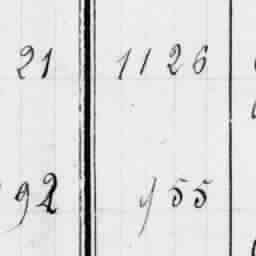 21 1126
92 955